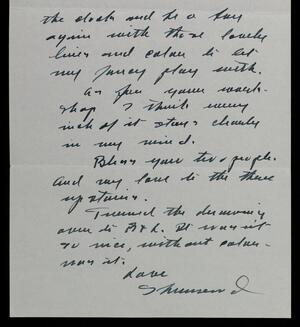 the clock and be a boy
again with those lovely
lines and color to let
my fancy play with.
As for your work-
shop I think every
inch of it stays clearly
in my mind.
Bless you two people.
And my love to the three
upstairs.
I turned the drawing
over to B&L. It was not
so nice, without color-
was it.
Love
Sherwood